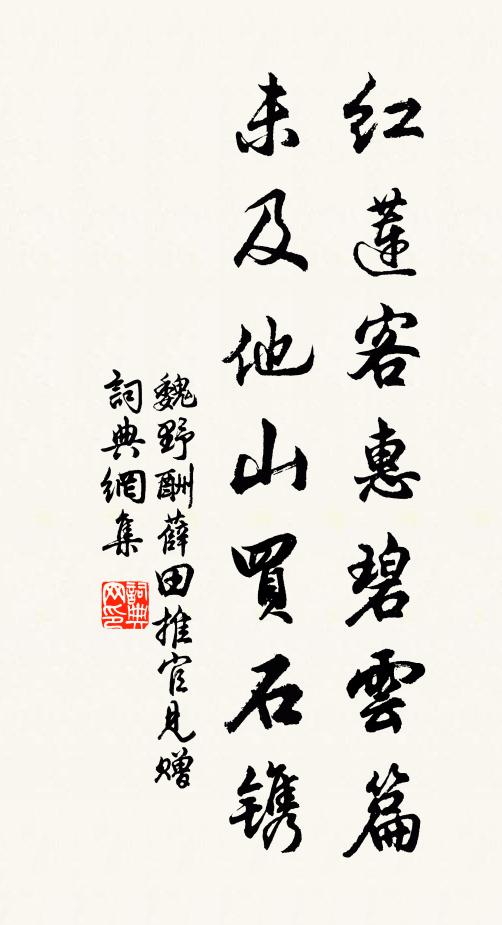 红蓮客惠碧雲篇
未及他山買石镌
魏野酬薛田推官見赠
詞典網集
詞典网印